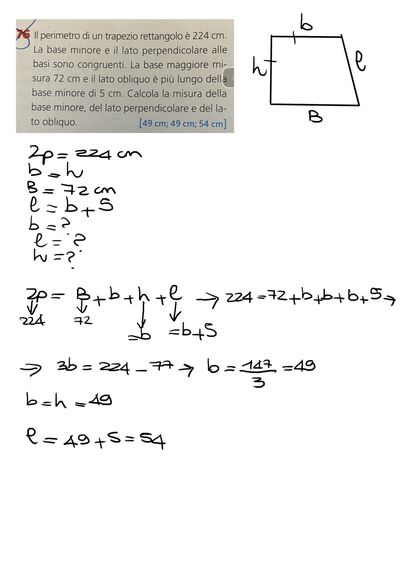 76 Il perimetro di un trapezio rettangolo è 224 cm.
La base minore e il lato perpendicolare alle
basi sono congruenti. La base maggiore mi-
sura 72 cm e il lato obliquo è più lungo della
base minore di 5 cm. Calcola la misura della
base minore, del lato perpendicolare e del la-
to obliquo. [49 cm; 49 cm; 54 cm]
b
h
l
B
2p = 224 cm
b = h
B = 72 cm
l = b + 5
b = ?
l = ?
h = ?
2p = B + b + h + l → 224 = 72 + b + b + b + 5 →
224 72 = b = b + 5
→ 3b = 224 - 77 → b = 147/3 = 49
b = h = 49
l = 49 + 5 = 54